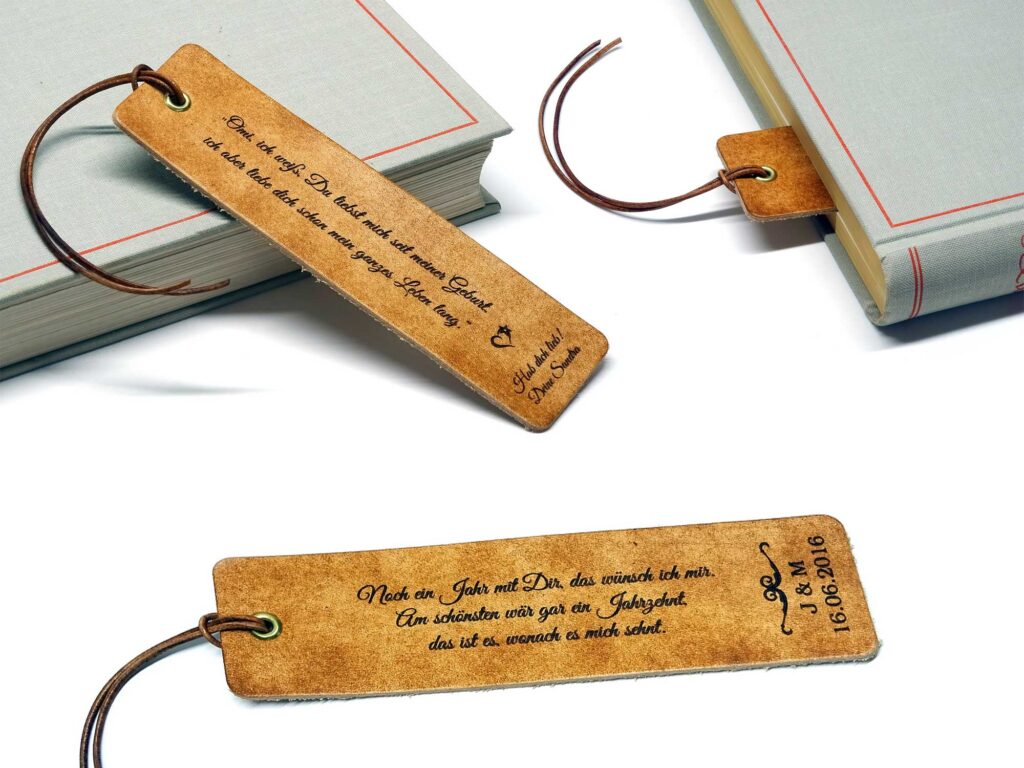 „Omi, ich weiß, Du liebst mich seit meiner Geburt,
ich aber liebe dich schon mein ganzes Leben lang.“
Hab dich lieb!
Deine Sandra
Noch ein Jahr mit Dir, das wünsch ich mir.
Am schönsten wär gar ein Jahrzehnt,
das ist es, wonach es mich sehnt.
J & M
16.06.2016